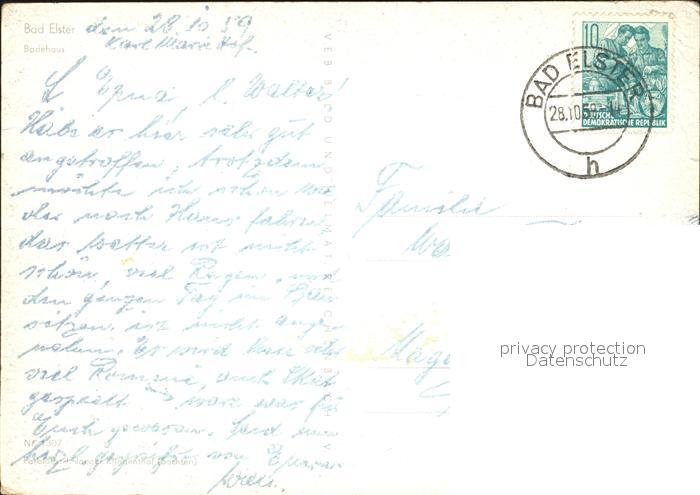 Bad Elster den 28.10.59
Badehaus Karl Marx Hof.
L. Erna, l. Walter!
Habe es hier sehr gut
angetroffen, trotzdem
möchte ich schon
nach Haus fahren,
das Wetter ist nicht
schön, viel Regen, und
den ganzen Tag im
sitzen ist nicht ange-
nehm. Es wird hier sehr
viel Rommé, auch Skat
gespielt war was für
Euch gewesen. Seid nun
herzl. gegrüßt von
Nr. 1307
10
DEUTSCHE
DEMOKRATISCHE REPUBLIK
BAD ELSTER
28.10.59
h
Familie
privacy protection
Datenschutz